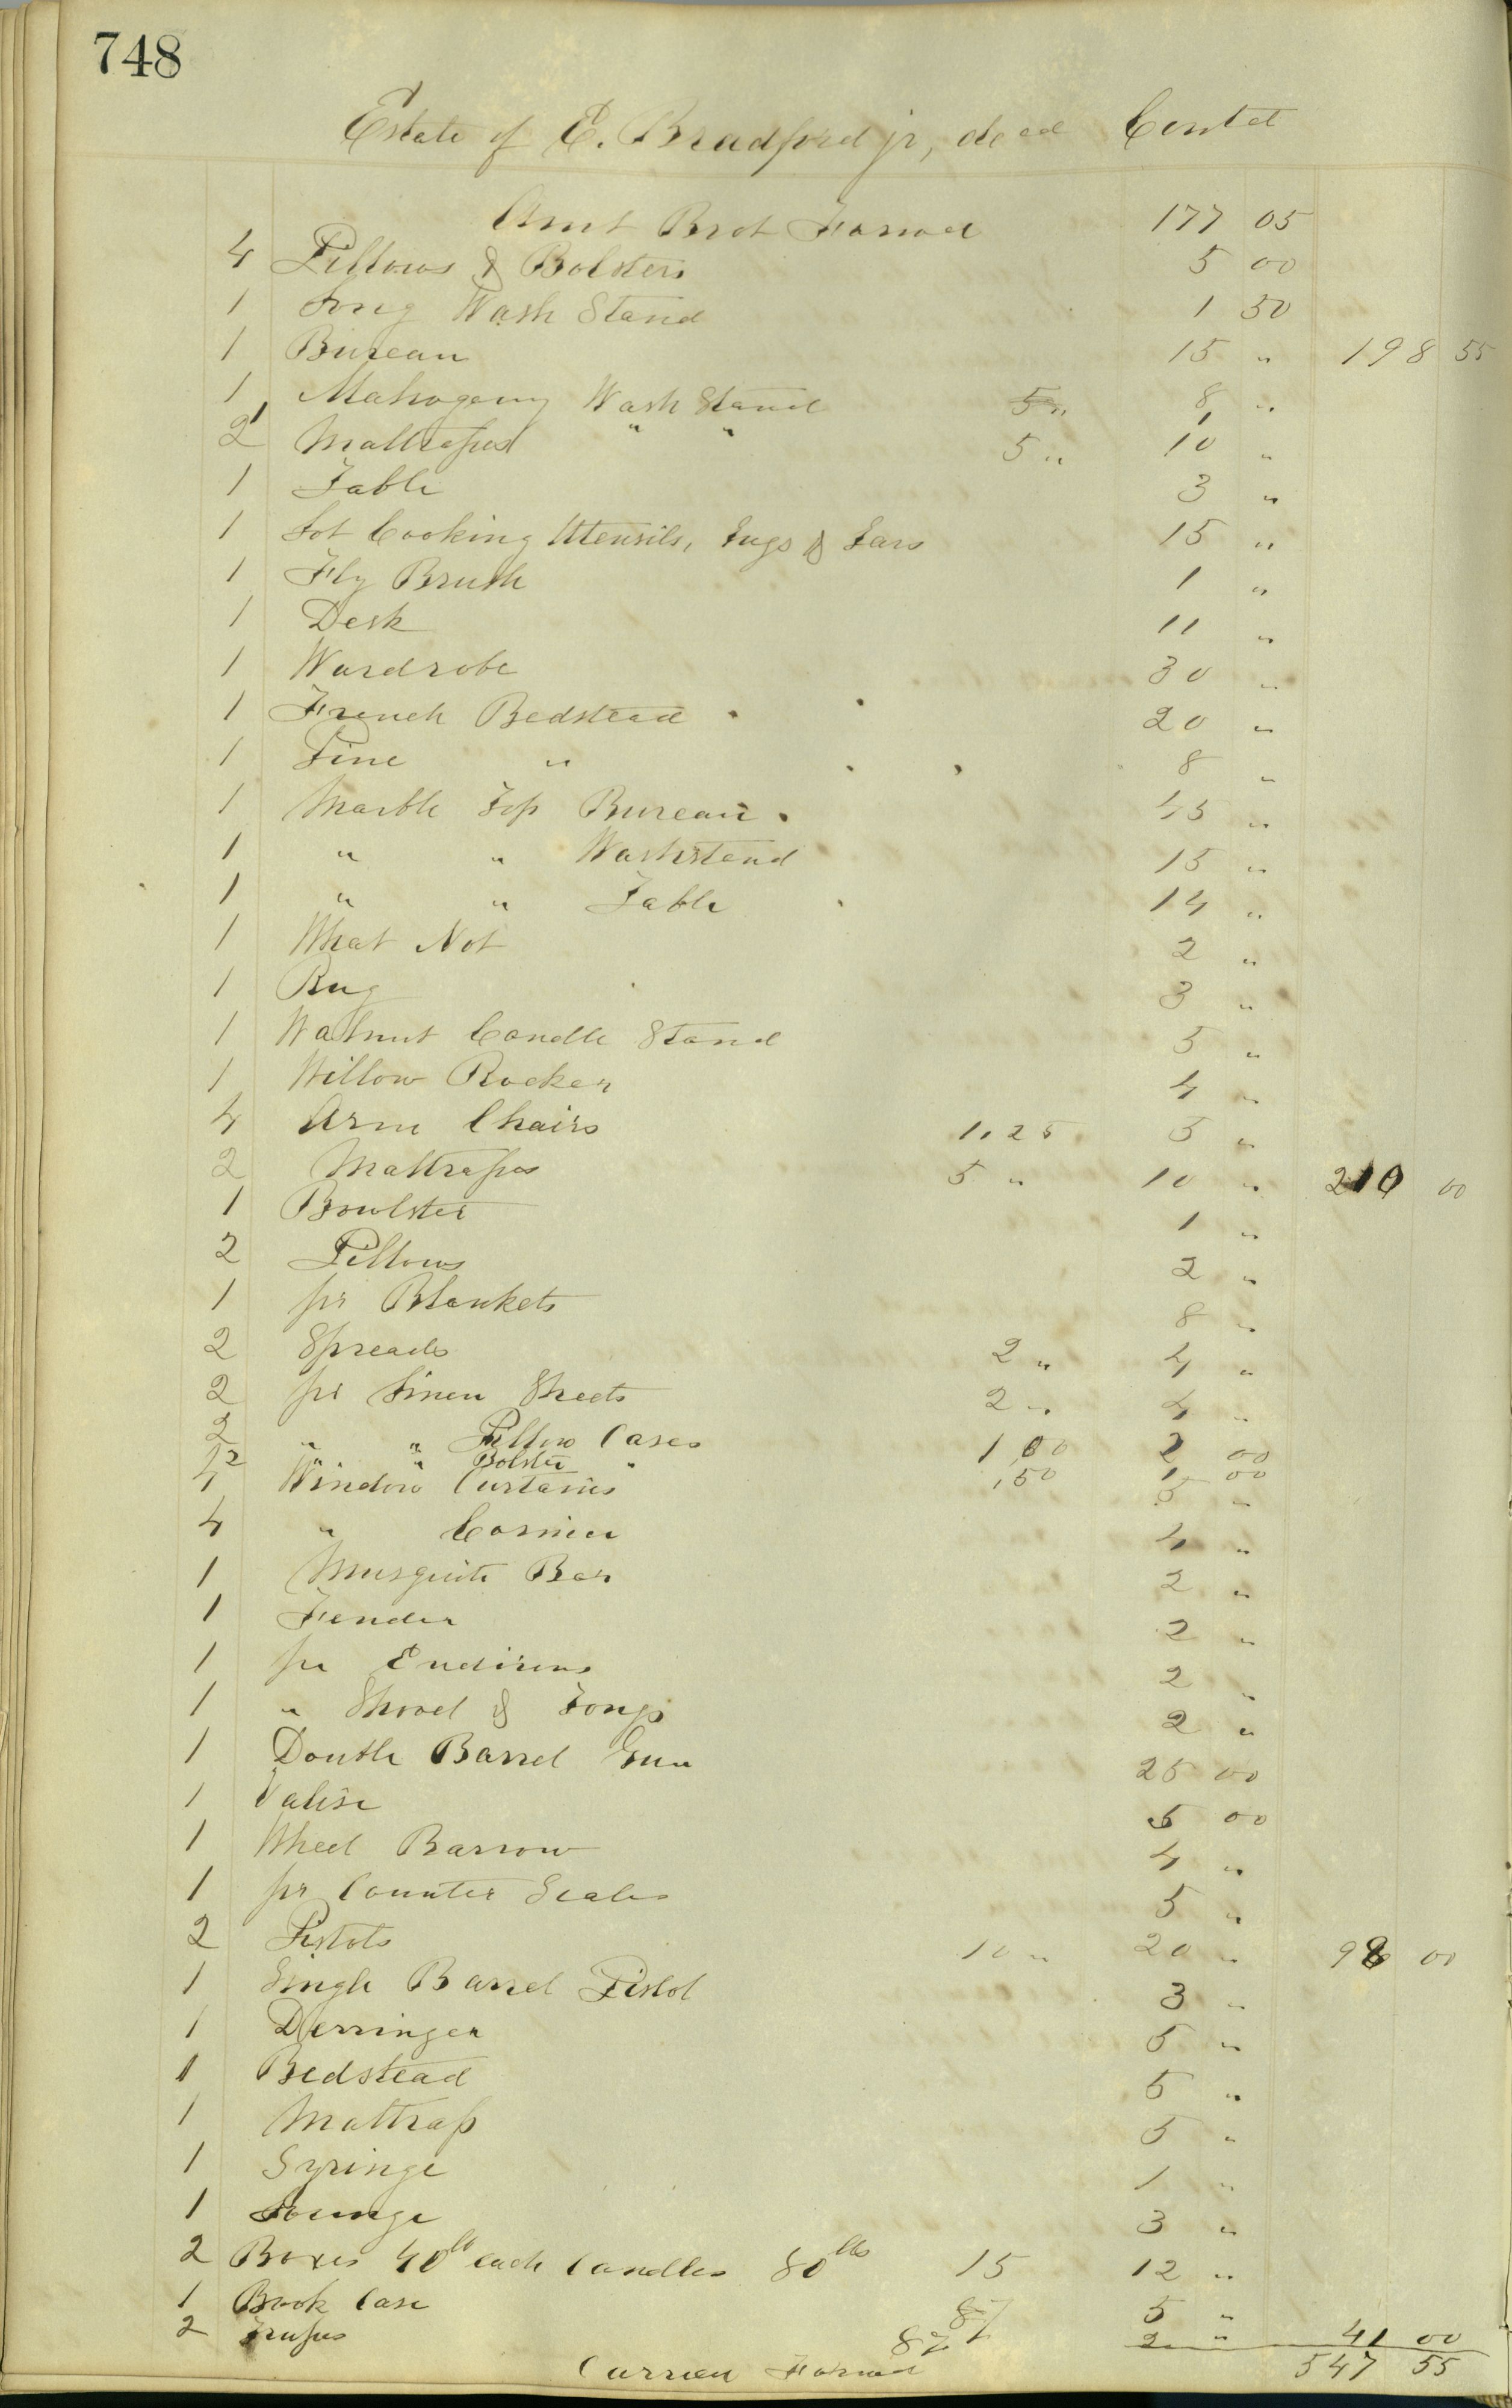 748
Estate of E. Bradford jr, decd Contd
Amt Brot Forward 177 05
4 Pillows & Bolsters 5 00
1 Long Wash Stand 1 50
1 Bureau 15 " 198 55
1 Mahogany Wash Stand 5 " 8 "
2 Mattrasses " " 5 " 10 "
1 Table 3 "
1 Lot Cooking Utensils, Jugs & Jars 15 "
1 Fly Brush 1 "
1 Desk 11 "
1 Wardrobe 30 "
1 French Bedstead 20 "
1 Pine " 8 "
1 Marble Top Bureau 45 "
1 " " Washstand 15 "
1 " " Table 14 "
1 What Not 2 "
1 Rug 3 "
1 Walnut Candle Stand 5 "
1 Willow Rocker 4 "
4 Arm Chairs 1.25 5 "
2 Mattrasses 5 " 10 " 210 00
1 Bowlster 1 "
2 Pillows 2 "
1 pr Blankets 8 "
2 Spreads 2 " 4 "
2 pr Linen Sheets 2 " 4 "
2 " " Pillow Cases 1 00 2 00
2 " " Bolster " ,50 1 00
4 Window Curtains 5 "
4 " Cornice 4 "
1 Musquito Bar 2 "
1 Fender 2 "
1 pr Endirons 2 "
1 " Shovel & Tongs 2 "
1 Double Barrel Gun 25 00
1 Valise 5 00
1 Wheel Barrow 4 "
1 pr Counter Scales 5 "
2 Pistols 10 " 20 " 98 00
1 Single Barrel Pistol 3 "
1 Derringer 5 "
1 Bedstead 5 "
1 Mattrass 5 "
1 Syringe 1 "
1 Lounge 3 "
2 Boxes 40 lb each Candles 80 lbs 15 12 "
1 Book Case 87 5 "
2 Trusses 87 2 " 41 00
Carried Forward 547 55